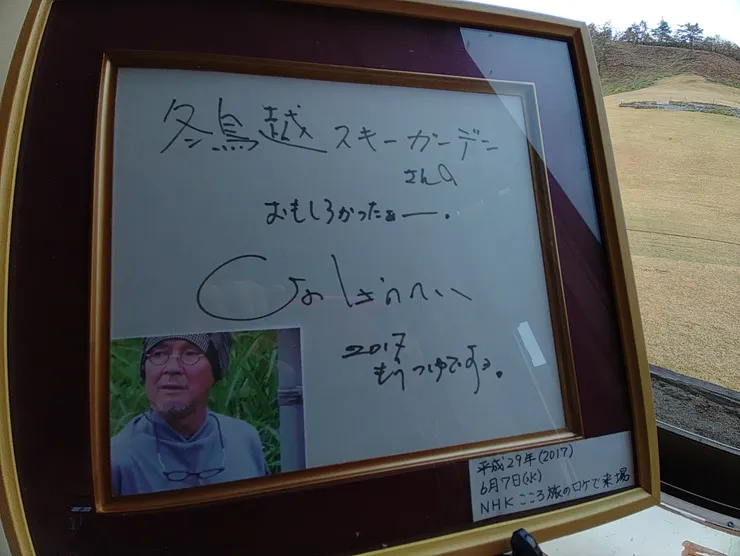 冬鳥越スキーガーデン
さんの
おもしろかったぁー。
ひの しょうへい
2017
もうつゆですヨ。
平成29年(2017)
6月7日(水)
NHK こころ旅のロケで来場